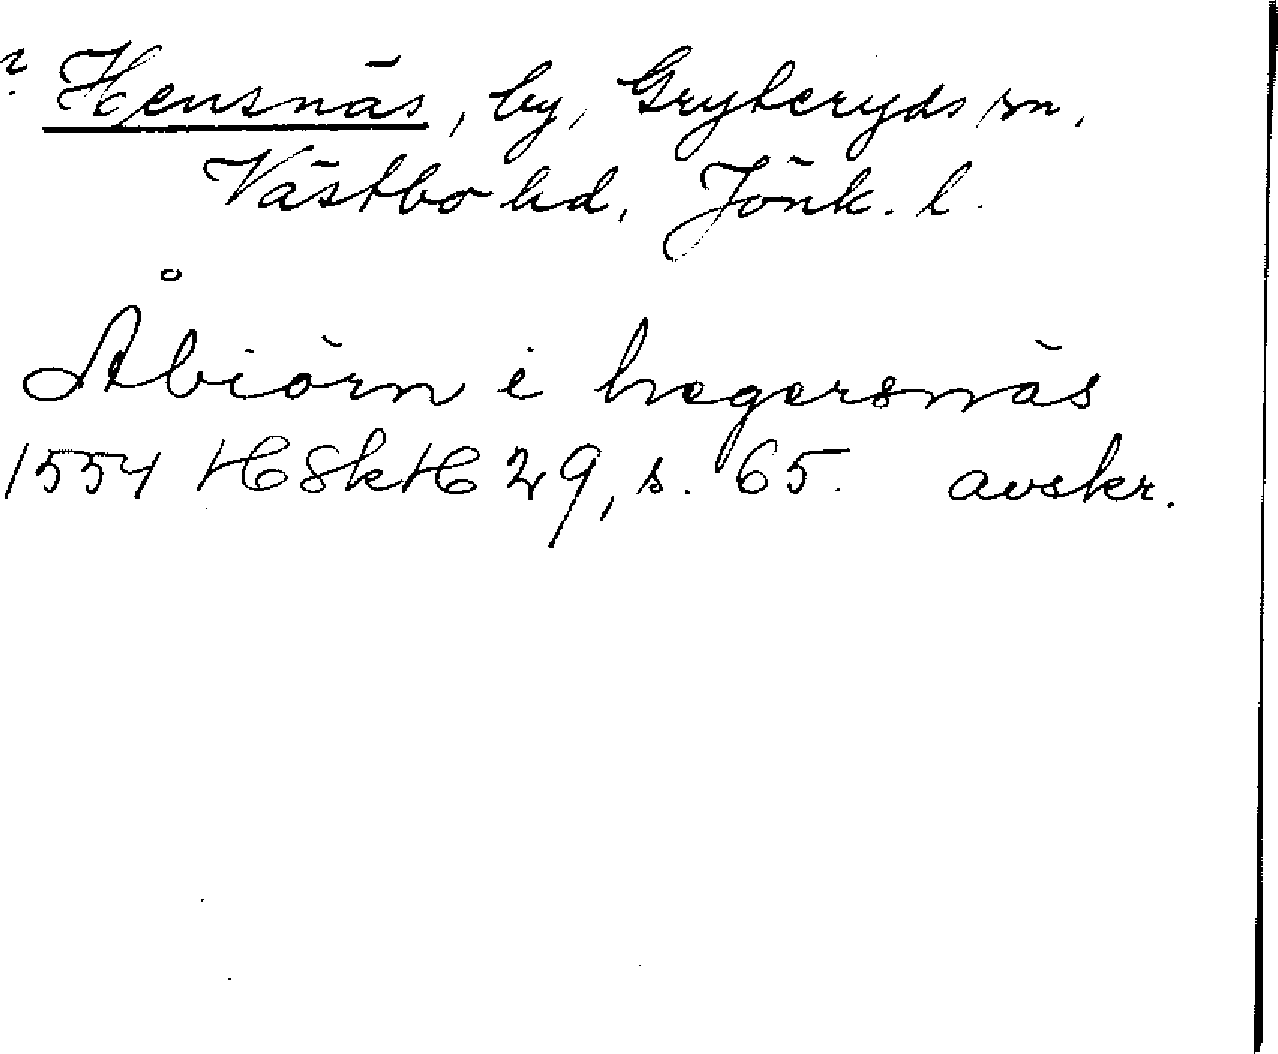 ? Hensnäs, by, Gryteryds sn,
Västbo hd, Jönk. l.
Åbiörn i hægersnäs
1554 HSkH 29, s. 65. avskr.